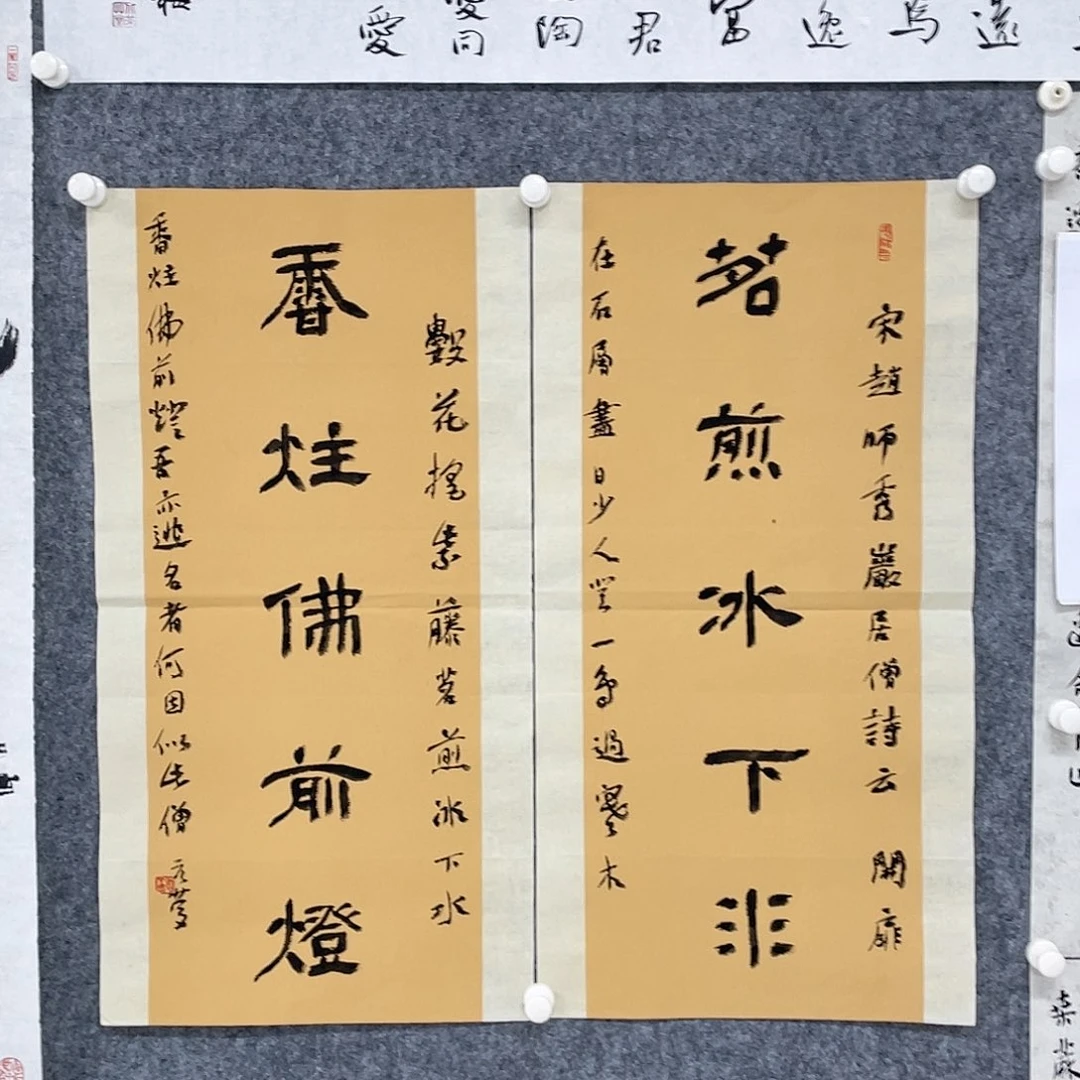 遠
焉
逸
富
君
陶
愛同
愛
宋趙師秀巖居僧詩云 開扉
茗煎冰下水
在石層盡日少人登一鳥過寒木
數花搖紫藤茗煎冰下水
香炷佛前燈
香炷佛前燈吾亦逃名者何因似此僧